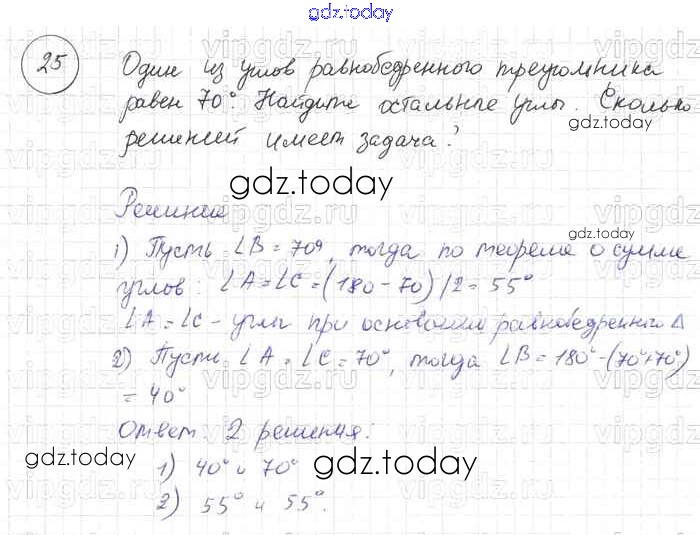 gdz.today
25
Один из углов равнобедренного треугольника
равен 70°. Найдите остальные углы. Сколько
решений имеет задача?
gdz.today
gdz.today
Решение
1) Пусть ∠B = 70°, тогда по теореме о сумме
углов: ∠A = ∠C = (180 - 70)/2 = 55°
∠A = ∠C - углы при основании равнобедренного Δ
2) Пусть ∠A = ∠C = 70°, тогда ∠B = 180° - (70°+70°)
= 40°
Ответ: 2 решения:
gdz.today
1) 40° и 70°
gdz.today
2) 55° и 55°.